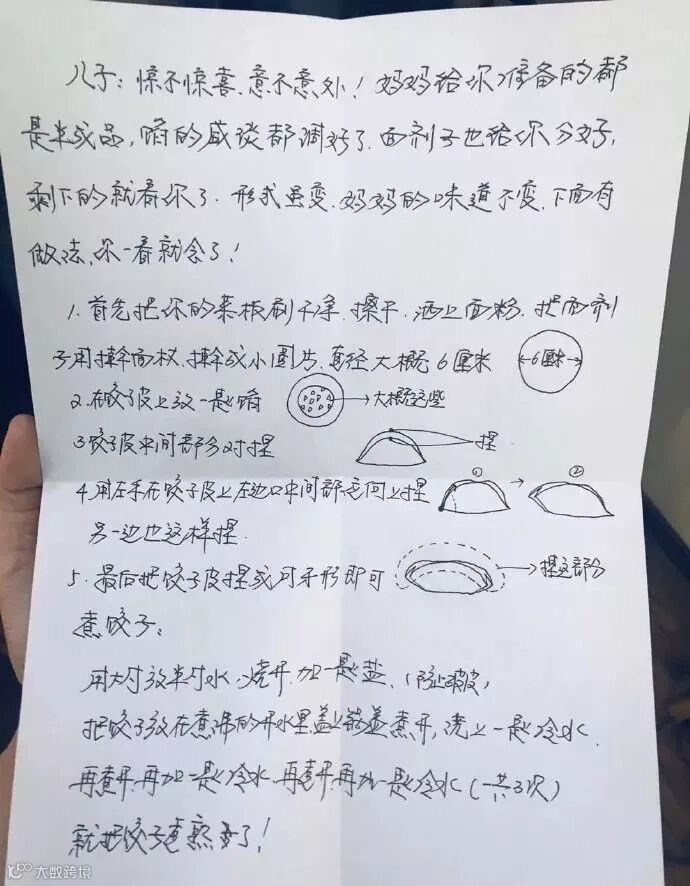 儿子：惊不惊喜、意不意外！妈妈给你准备的都
是半成品，馅的咸淡都调好了．面剂子也给你分好，
剩下的就看你了．形式虽变．妈妈的味道不变、下面有
做法、你一看就会了！
1．首先把你的菜板刷干净．擦干．洒上面粉．把面剂
子用擀面杖．擀成小圆片、直径大概6厘米
←6厘米→
2．在饺子皮上放一些馅
→大概这些
3饺子皮中间部分对捏
捏
4．用左手在饺子皮上左边口中间部位向上捏
① → ②
另一边也这样捏．
5．最后把饺子皮捏成月牙形即可
→捏这部分
煮饺子：
用大锅放半锅水．烧开．加一些盐、（防止破皮）
把饺子放在煮沸的开水里盖上锅盖煮开，浇上一些冷水．
再煮开．再加一些冷水．再煮开再加一些冷水（一共3次）
就把饺子煮熟了！
大数跨境